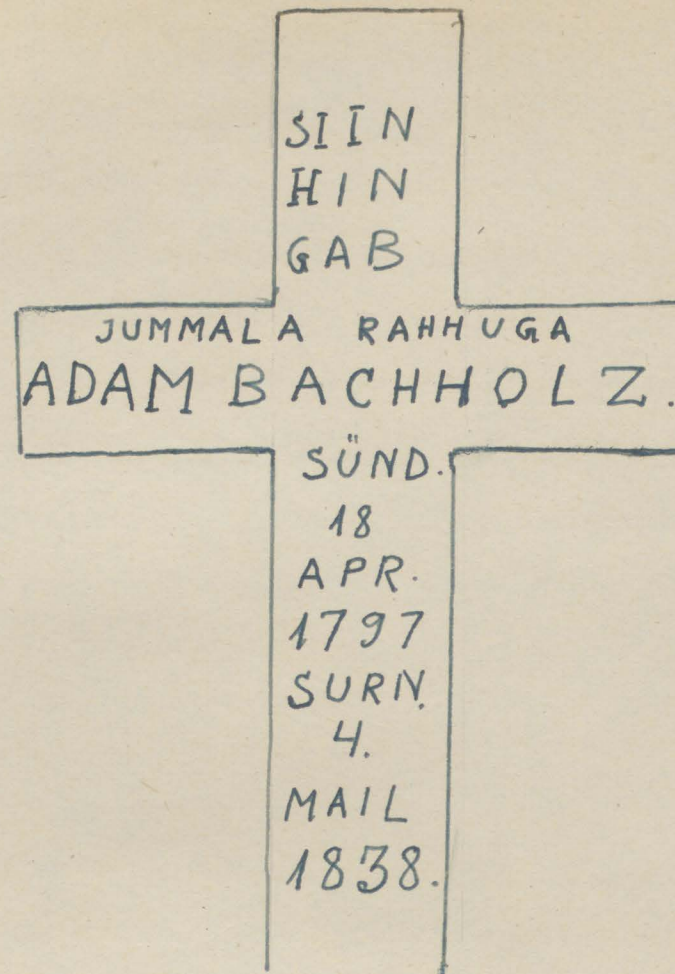 SIIN
HIN
GAB
JUMMALA RAHHUGA
ADAM BACHHOLZ.
SÜND.
18
APR.
1797
SURN.
4.
MAIL
1838.